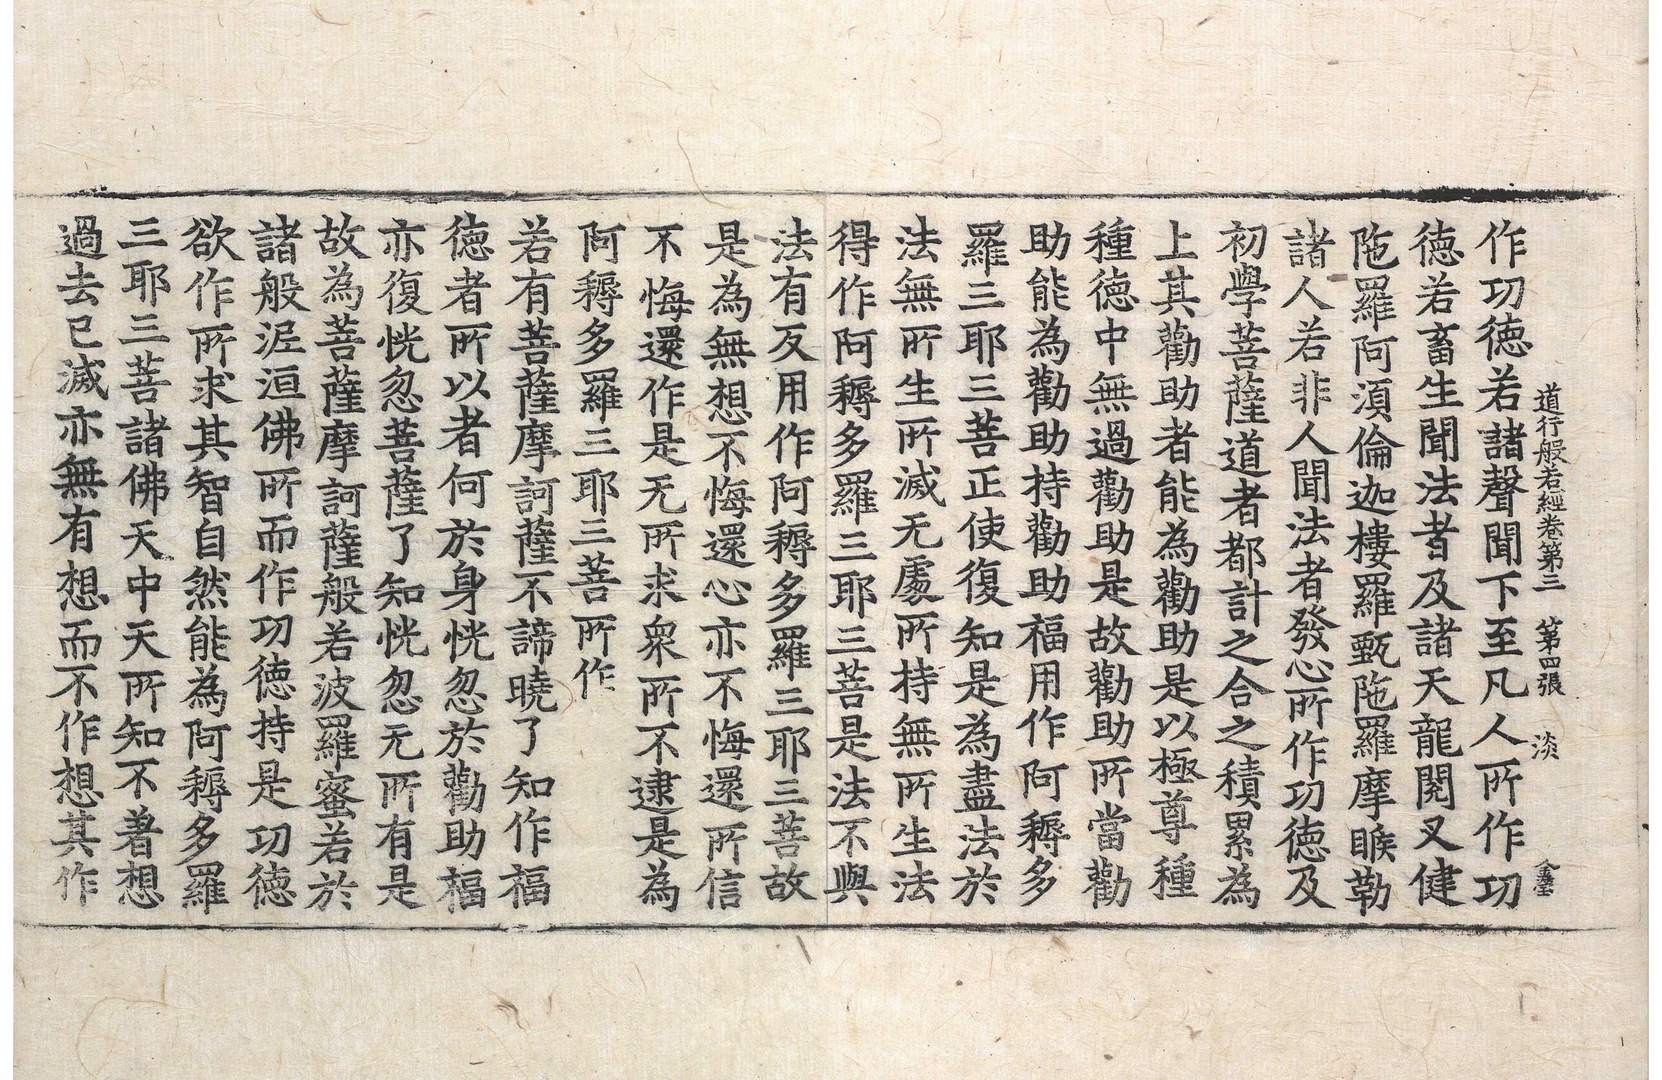 道行般若經卷第三　第四張　淡
作功德若諸聲聞下至凡人所作功
德若畜生聞法者及諸天龍閱叉健
陁羅阿湏倫迦樓羅甄陁羅摩睺勒
諸人若非人聞法者發心所作功德及
初學菩薩道者都計之合之積累為
上其勸助者能為勸助是以極尊種
種德中無過勸助是故勸助所當勸
助能為勸助持勸助福用作阿耨多
羅三耶三菩正使復知是為盡法於
法無所生所滅无處所持無所生法
得作阿耨多羅三耶三菩是法不與
法有反用作阿耨多羅三耶三菩故
是為無想不悔還心亦不悔還所信
不悔還作是无所求衆所不逮是為
阿耨多羅三耶三菩所作
若有菩薩摩訶薩不諦曉了知作福
德者所以者何於身恍忽於勸助福
亦復恍忽菩薩了知恍忽无所有是
故為菩薩摩訶薩般若波羅蜜若於
諸般泥洹佛所而作功德持是功德
欲作所求其智自然能為阿耨多羅
三耶三菩諸佛天中天所知不著想
過去已滅亦無有想而不作想其作